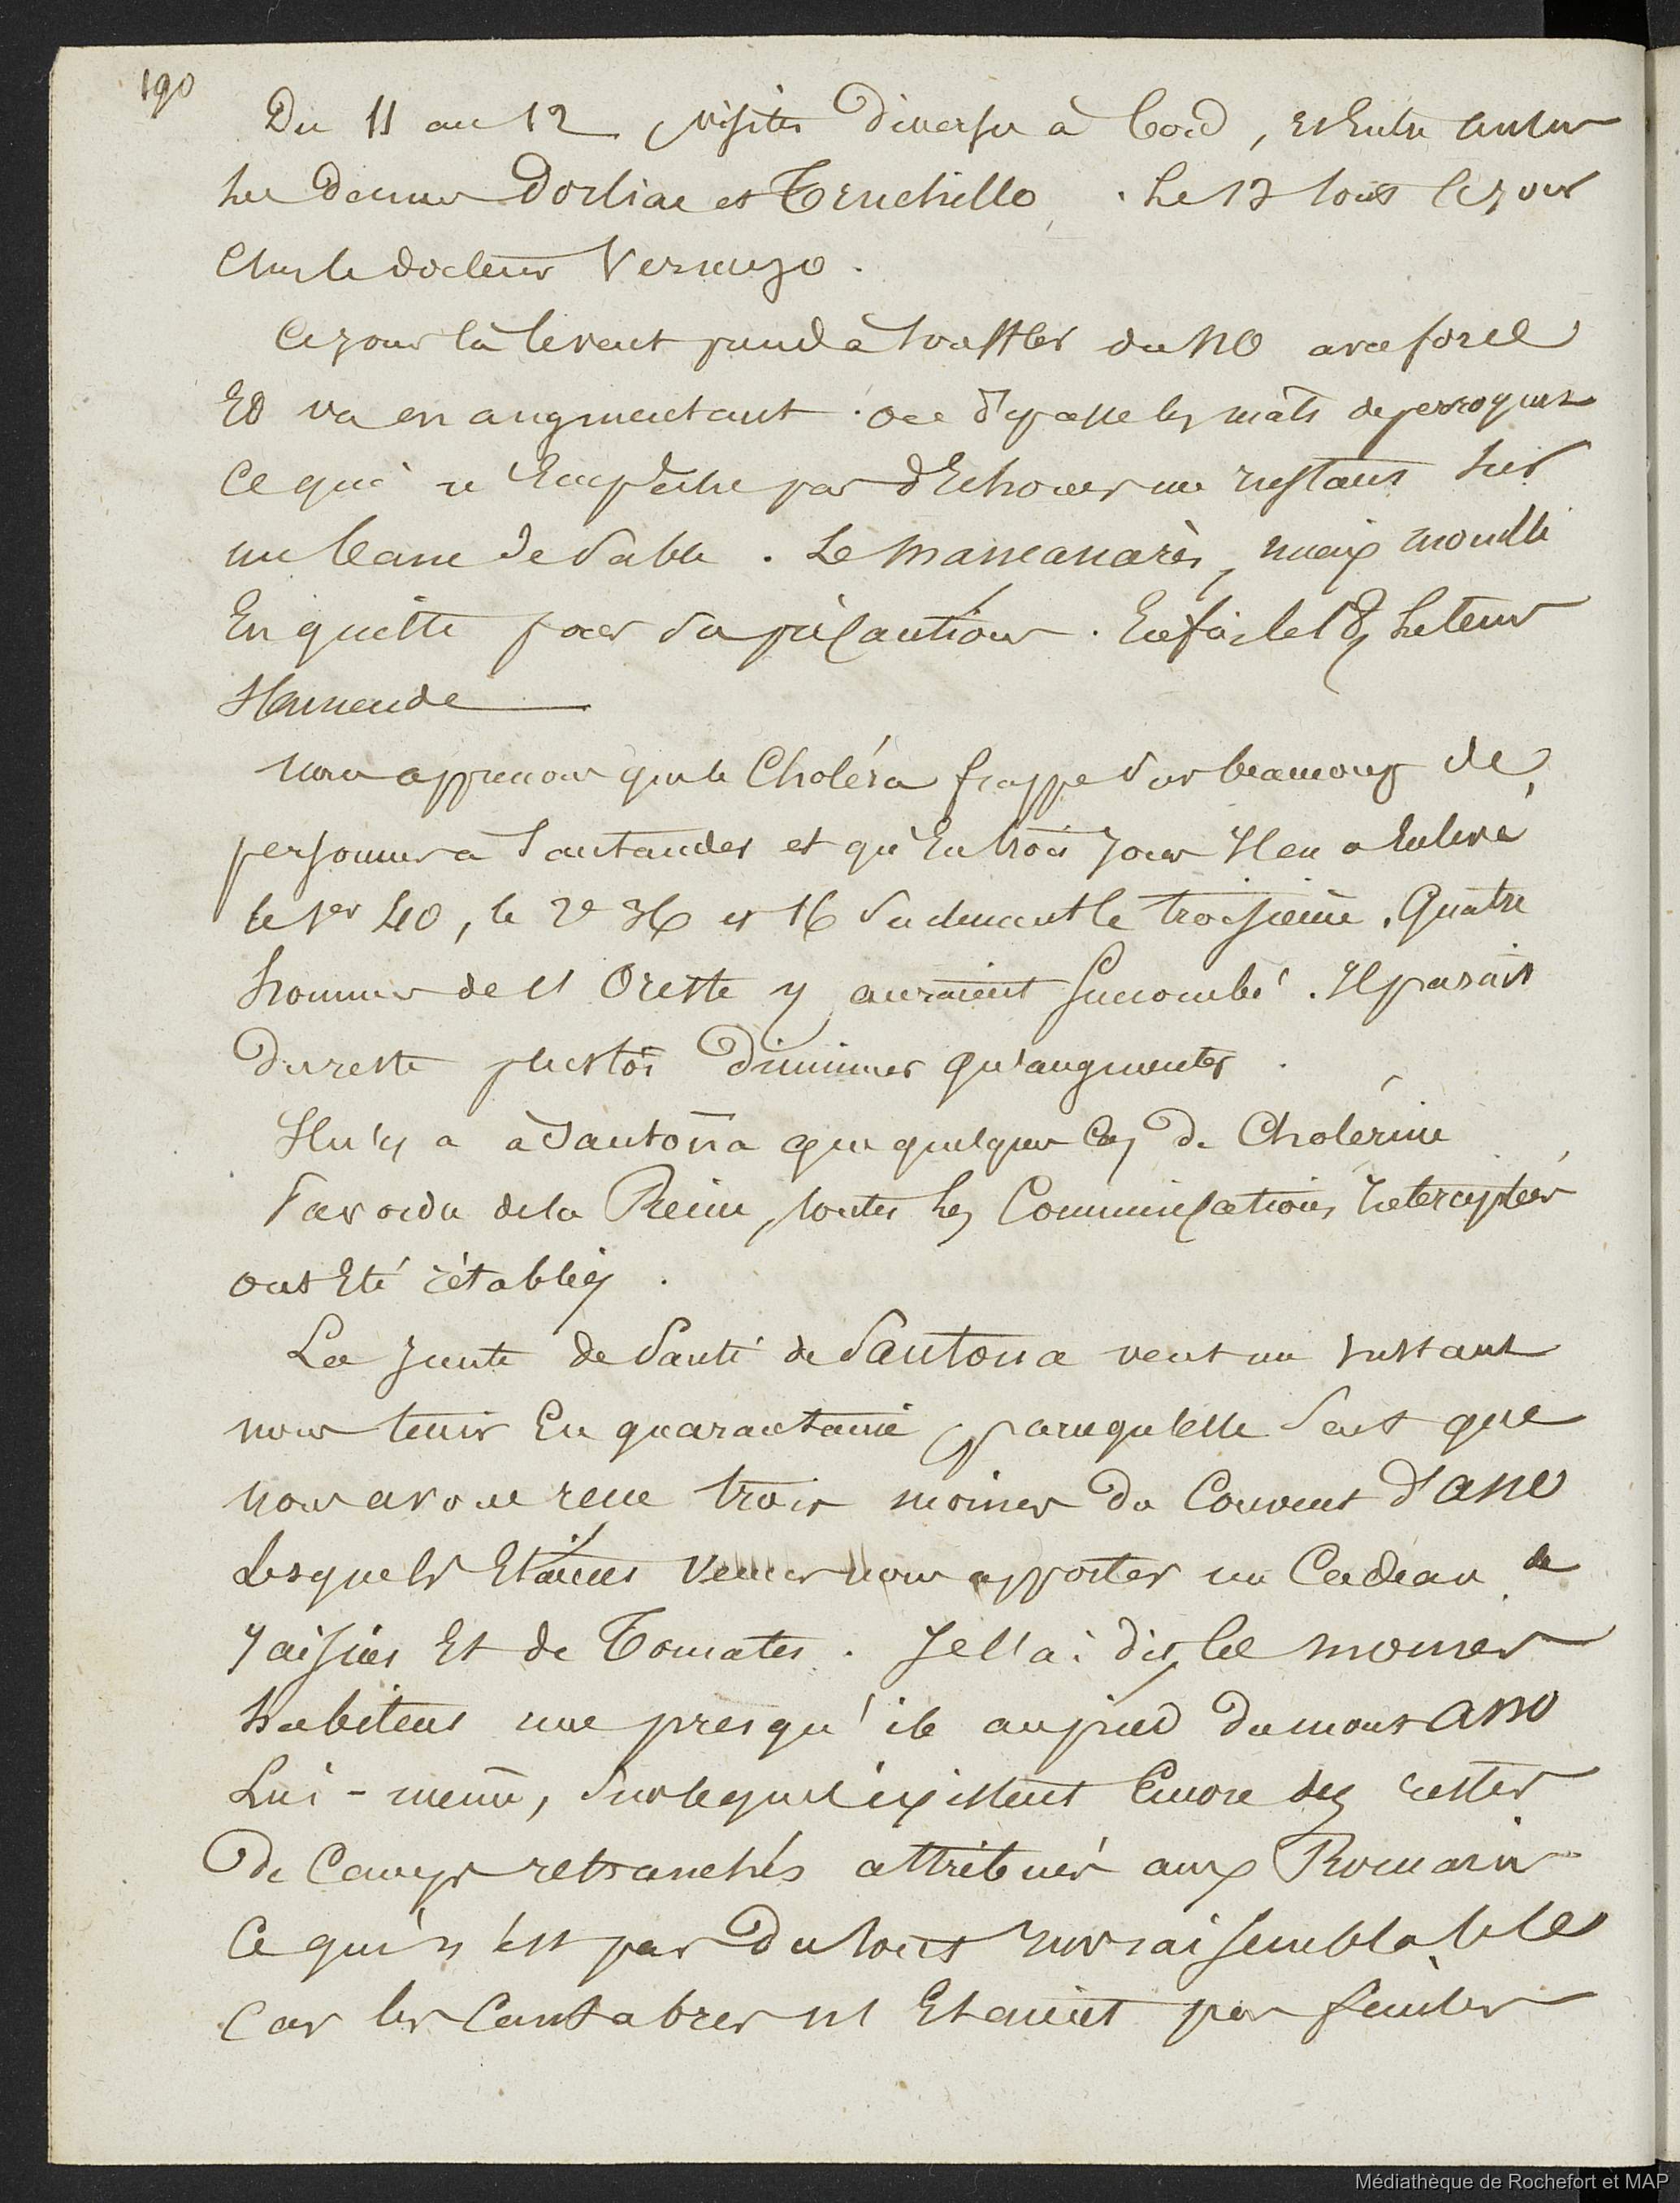 190
Du 11 au 12 visites diverses à bord, et entre autres
les dames Dorliac et Truchillo. Le 13 tout le jour
chez le docteur Vermejo.
Ce jour là le vent prend à souffler du NO avec force
et va en augmentant. On dépasse les mâts de perroquet
ce qui n'empêche pas d'échouer un instant sur
un banc de sable. Le Mancanarès, mieux mouillé
en quitte pour sa précaution. Enfin le 18, le tems
s'amende
Nous apprenons que le Choléra frappe sur beaucoup de
personnes à Santander et qu'en trois jours Il en a enlevé
le 1er 40, le 2e 36 et 16 seulement le troisième. Quatre
hommes de l'Oreste y auraient succombé. Il parait
du reste plustôt diminuer qu'augmenter.
Il n'y a à Santoña que quelques cas de Cholérine
Par ordre de la Reine, toutes les Communications interceptées
ont été rétablies.
La Junte de Santé de Santona veut un instant
nous tenir en quarantaine, parcequ'elle sait que
nous avons reçu trois moines du Couvent d'Ano
Lesquels étaient venus nous apporter un Cadeau de
raisins et de Tomates. Je l'ai dit, ces moines
habitent une presqu'ile au pied du mont Ano
Lui-même, sur lequel existent encore des restes
de Camps retranchés attribués aux Romains
Ce qui n'est pas du tout invraisemblable
Car les Cantabres n'étaient pas faciles
Médiathèque de Rochefort et MAP